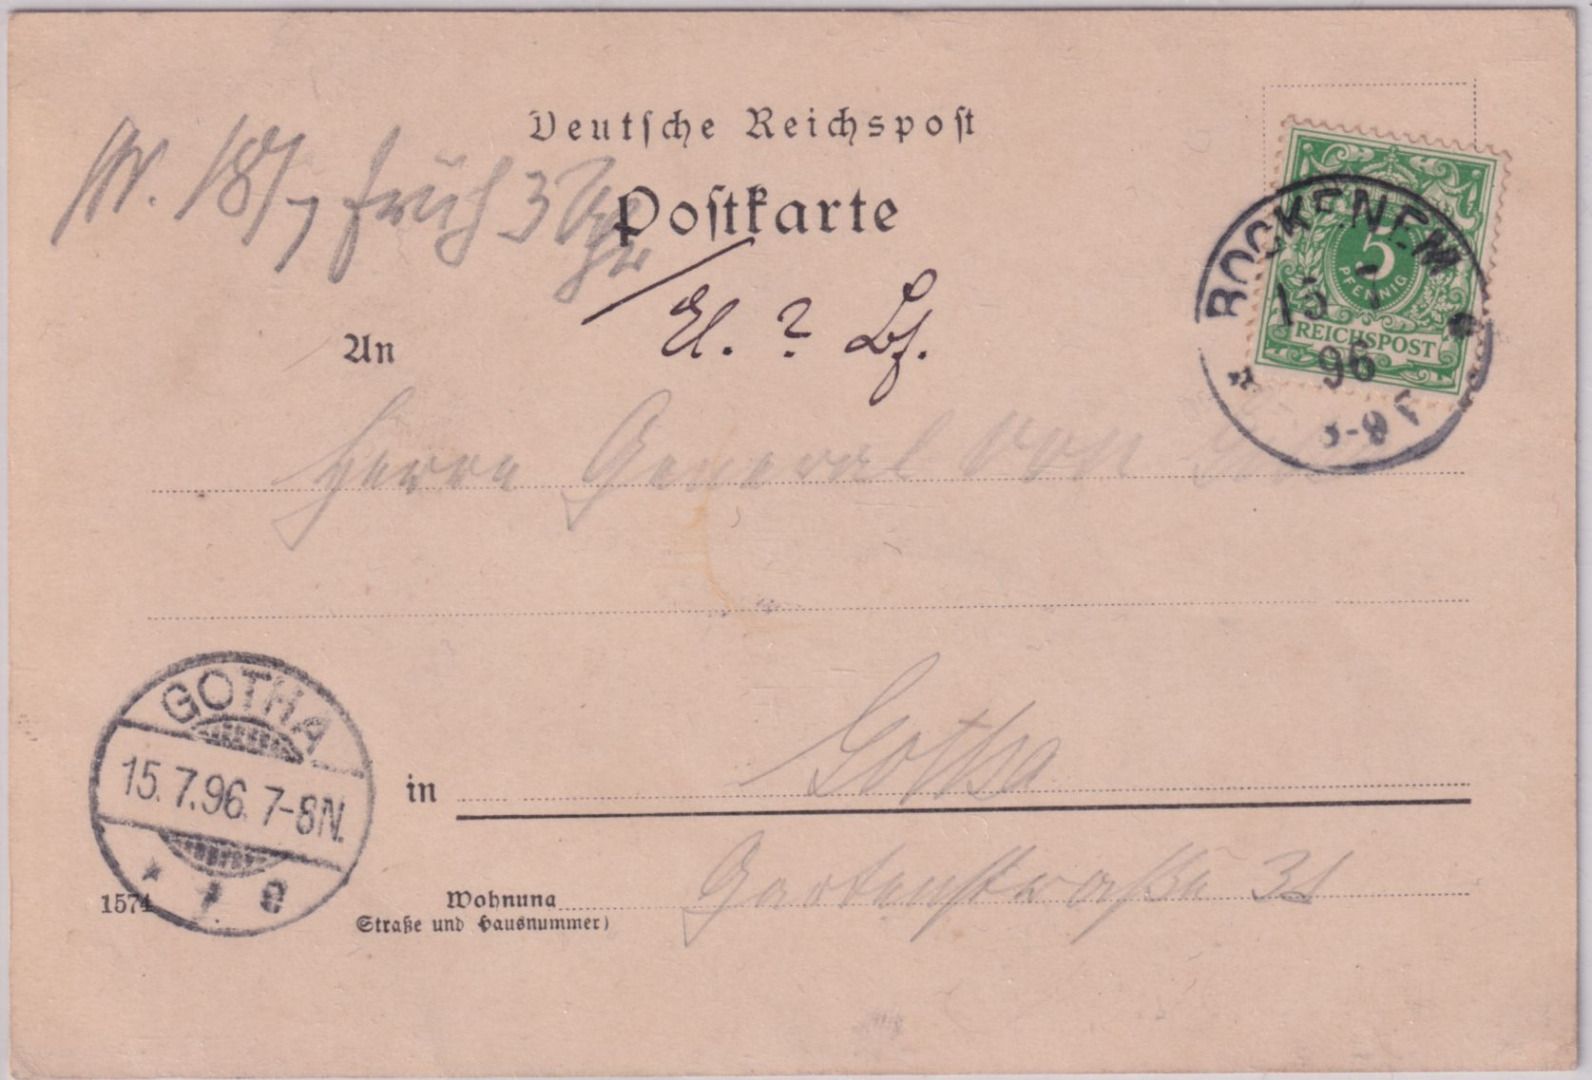 Deutsche Reichspost
W. 18/7 früh 3 Uhr
Postkarte
El. ? Bf.
An
BOCKENEM
15 7
96
8-9 V
5
PFENNIG
REICHSPOST
Herrn General von
GOTHA
15.7.96. 7-8N.
* 1 e
in Gotha
1574
Wohnung Gartenstraße 31
(Straße und Hausnummer)